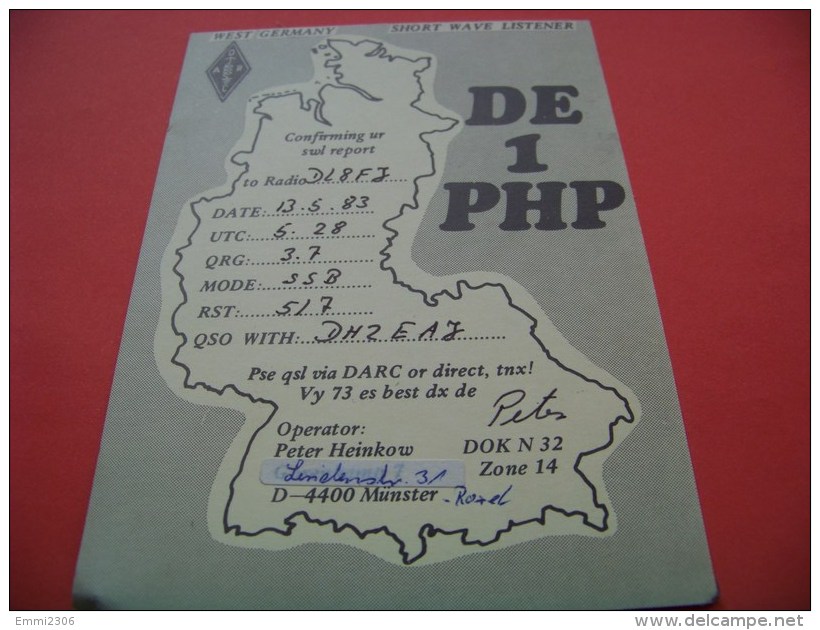 WEST GERMANY SHORT WAVE LISTENER
DE
1
PHP
Confirming ur
swl report
to Radio DL8FJ
DATE: 13.5.83
UTC: 5.28
QRG: 3.7
MODE: SSB
RST: 5/7
QSO WITH: DH2EAJ
Pse qsl via DARC or direct, tnx!
Vy 73 es best dx de
Peter
Operator:
Peter Heinkow DOK N 32
Lindenstr. 31 Zone 14
D-4400 Münster - Roxel
Emmi2306
www.delcampe.net